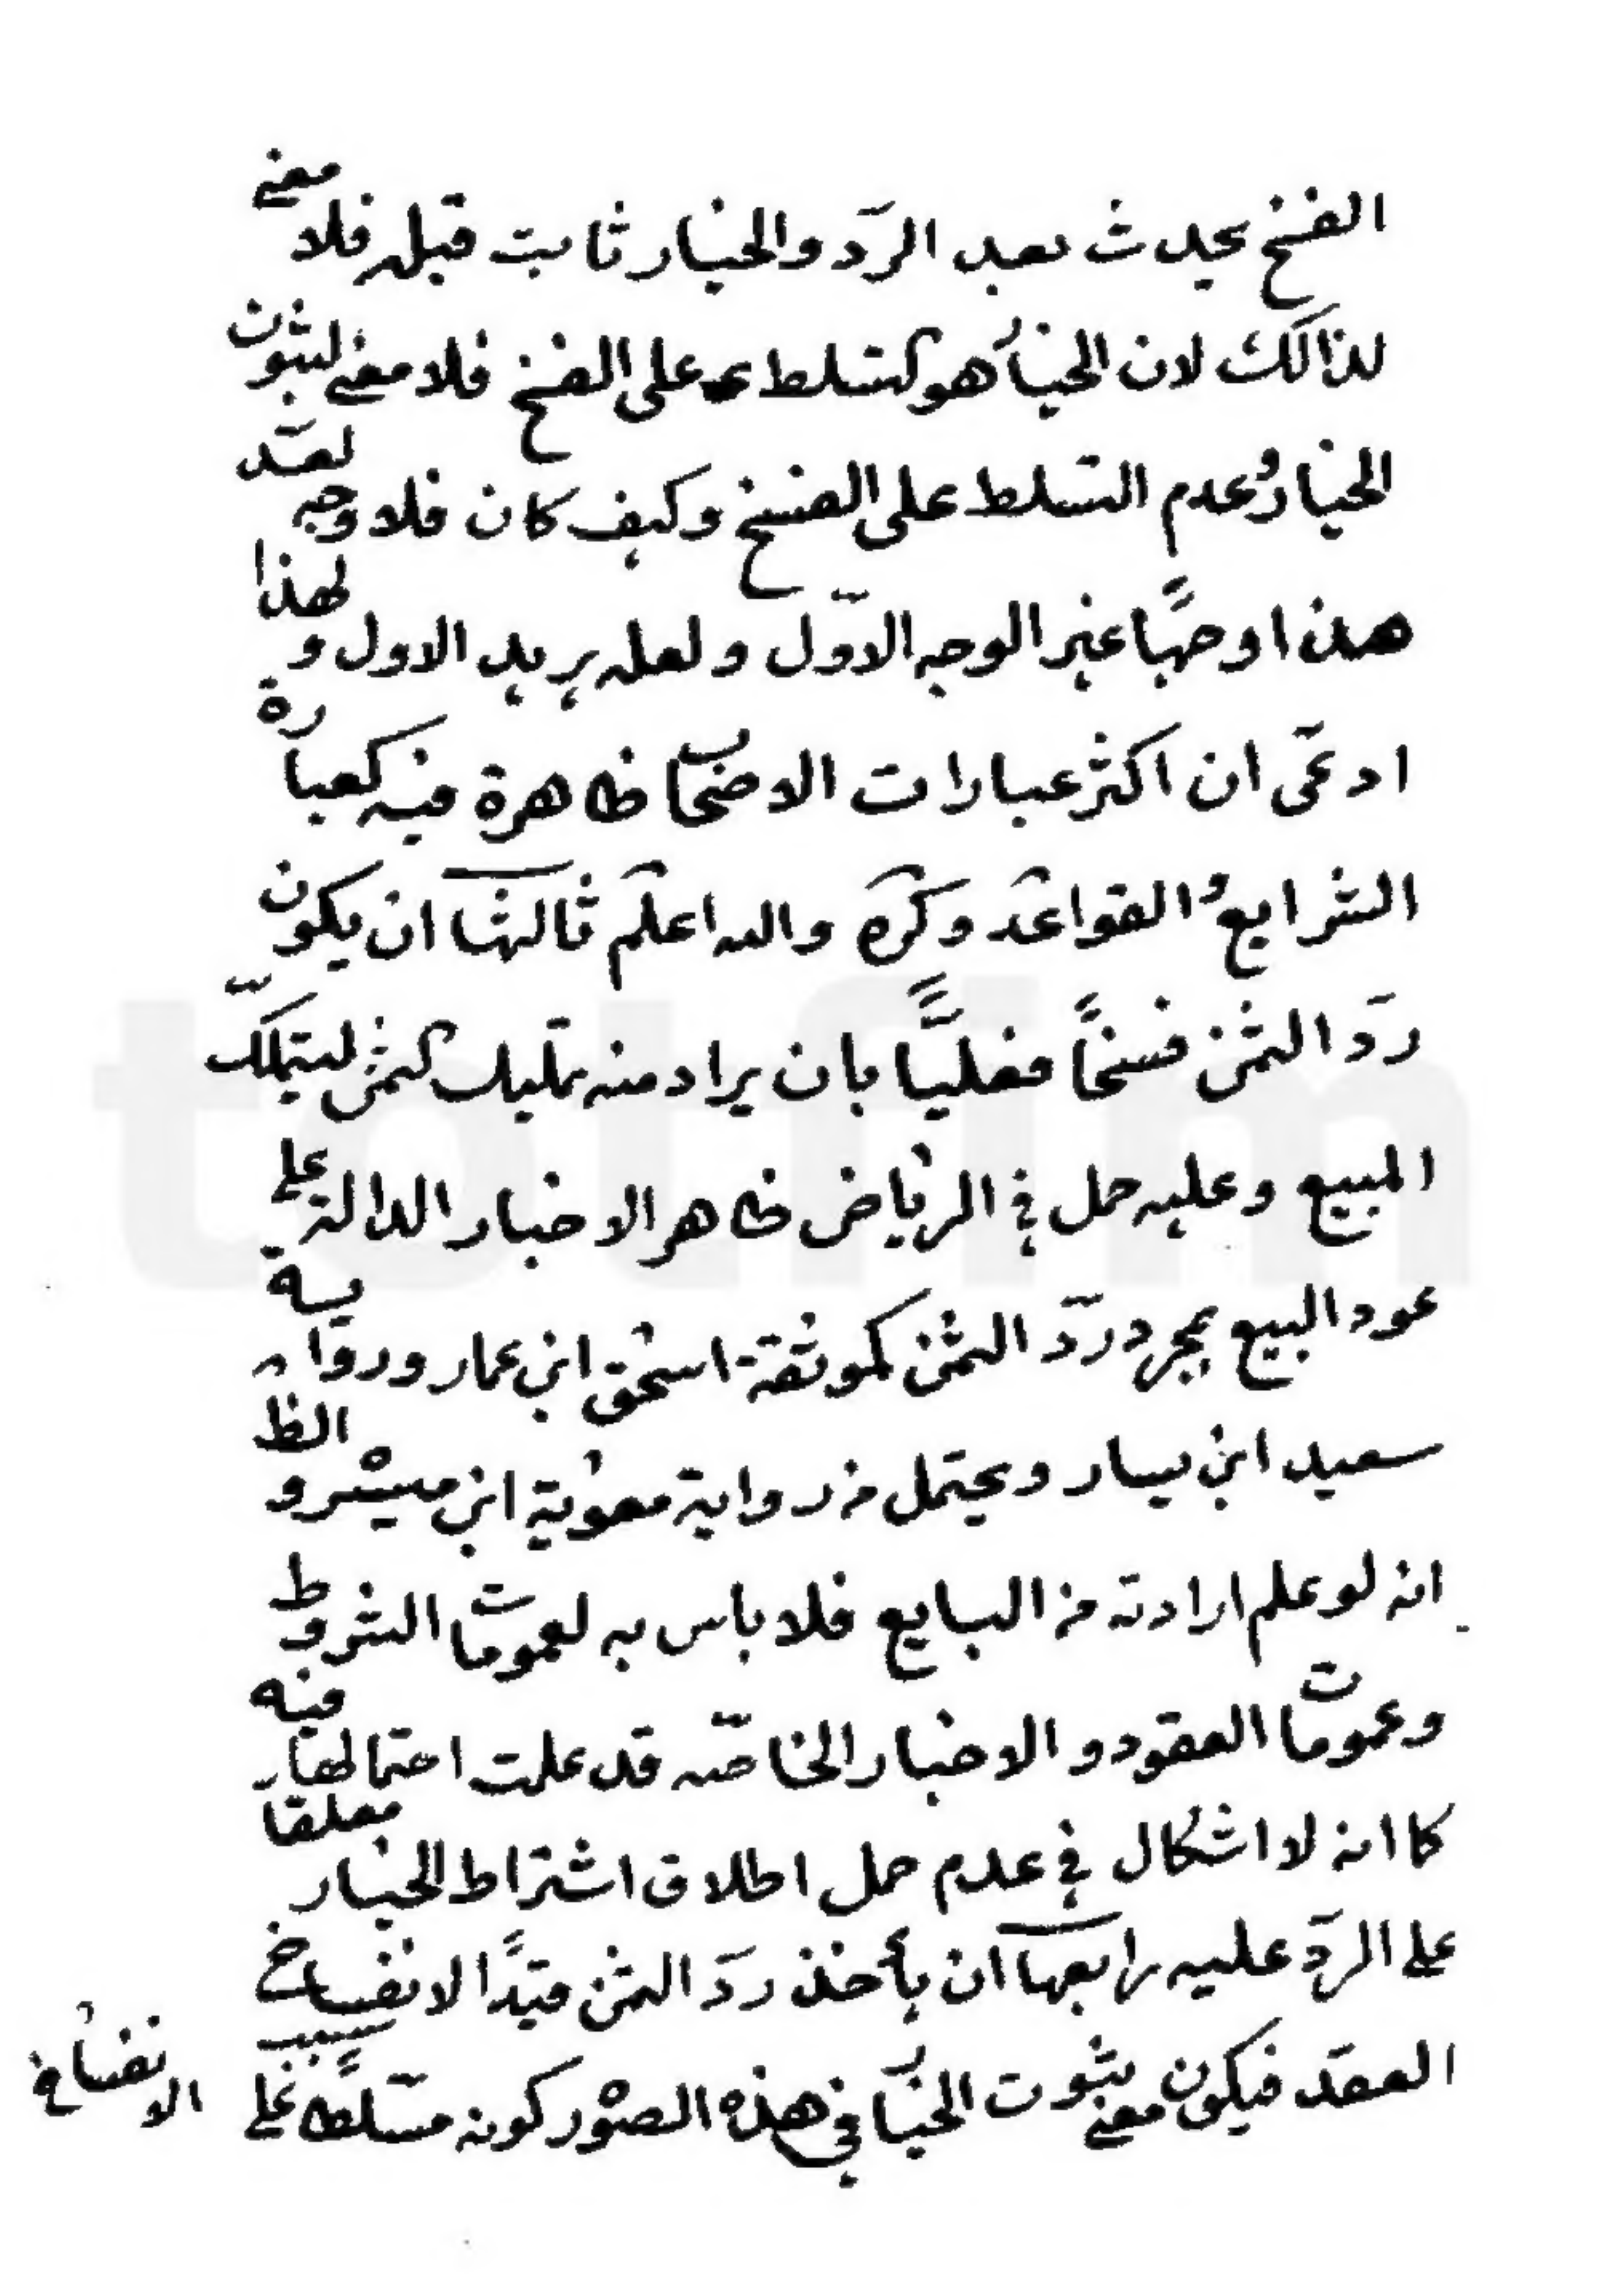 الفسخ يحدث بعد الردّ والخيار ثابت قبله فلا معنى
لذالك لان الخيار هو التسلط على الفسخ فلا معنى لثبوت
الخيار وعدم التسلط على الفسخ وكيف كان فلا وجه لعدّ
هذا وجهًا غير الوجه الاوّل ولعله يريد الاول ولهذا
ادعى ان اكثر عبارات الاصحاب ظاهرة فيه كعبارة
الشرايع والقواعد وكره والله اعلم ثالثها ان يكون
ردّ الثمن فسخًا فعليًّا بان يراد منه تمليك الثمن ليتملّك
المبيع وعليه حمل في الرياض ظاهر الاخبار الدالة على
عود البيع بمجرد ردّ الثمن كموثقة اسحق ابن عمار ورواية
سعيد ابن يسار ويحتمل من رواية معوية ابن ميسره والظ
انه لو علم ارادته من البايع فلا باس به لعمومات الشروط
وعمومات العقود والاخبار الخاصّه قد علمت احتمالها فيه
كما انه لا اشكال في عدم حمل اطلاق اشتراط الخيار معلقا
على الردّ عليه رابعها ان يأخذ ردّ الثمن قيدًا لانفساخ
العقد فيكون معنى ثبوت الخيار في هذه الصور كونه مسّلطًا على سبب الانفساخ